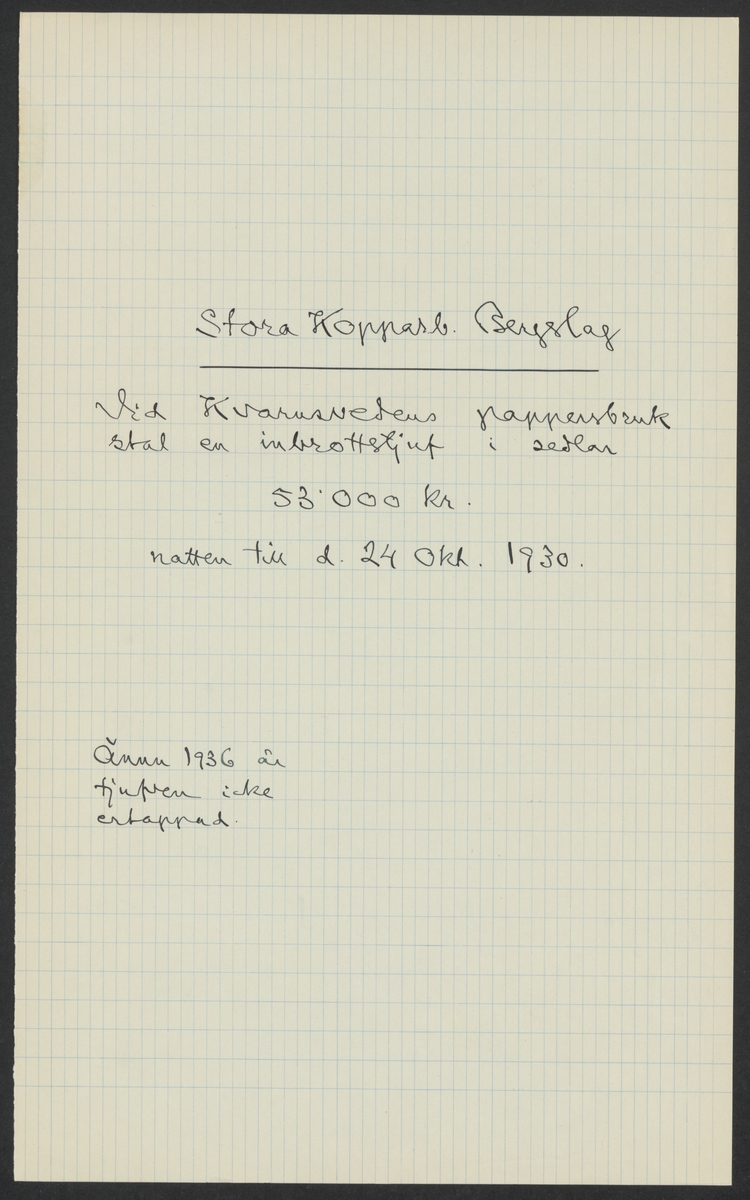 Stora Kopparb. Bergslag
Vid Kvarnsvedens pappersbruk
stal en inbrottstjuf i sedlar
53.000 kr.
natten till d. 24 Okt. 1930.
Ännu 1936 är
tjufven icke
ertappad.